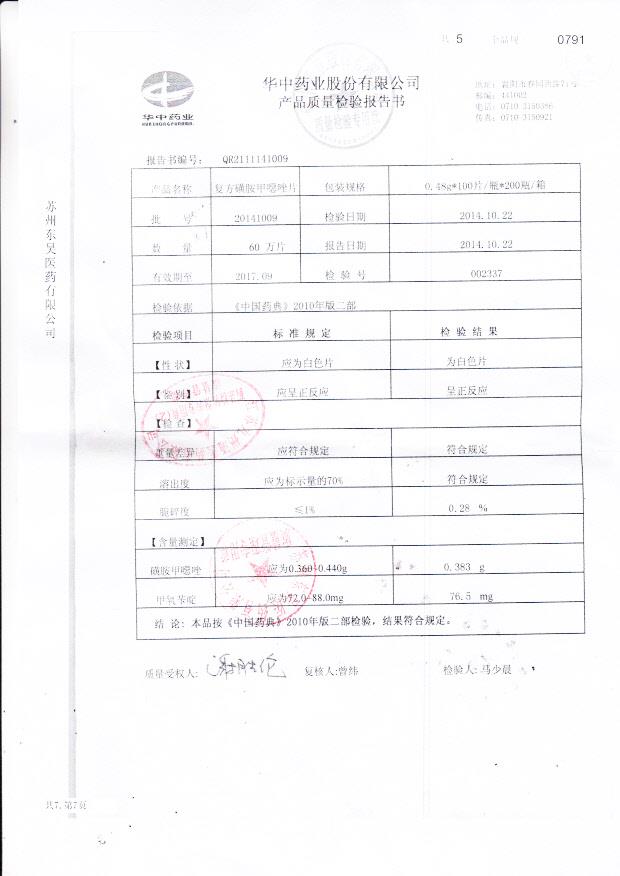 共 5 0791
华中药业股份有限公司
产品质量检验报告书
华中药业
邮编: 441002
电话: 0710 3150386
传真: 0710 3150921
质量检验专用章
报告书编号: QR2111141009
产品名称 复方磺胺甲噁唑片 包装规格 0.48g*100片/瓶*200瓶/箱
批 号 20141009 检验日期 2014.10.22
数 量 60 万片 报告日期 2014.10.22
有效期至 2017.09 检 验 号 002337
检验依据 《中国药典》2010年版二部
检验项目 标 准 规 定 检 验 结 果
【性 状】 应为白色片 为白色片
【鉴别】 应呈正反应 呈正反应
【检 查】
重量差异 应符合规定 符合规定
溶出度 应为标示量的70% 符合规定
脆碎度 ≤1% 0.28 %
【含量测定】
磺胺甲噁唑 应为0.360-0.440g 0.383 g
甲氧苄啶 应为72.0-88.0mg 76.5 mg
结 论: 本品按《中国药典》2010年版二部检验，结果符合规定。
质量受权人: 谢胜伦 复核人:曾纬 检验人:马少晨
苏州东吴医药有限公司
共7,第7页